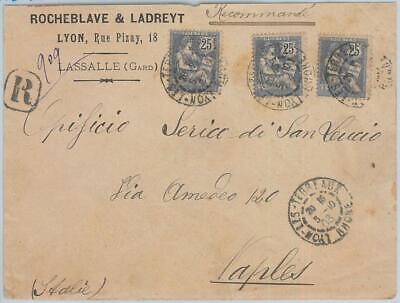 ROCHEBLAVE & LADREYT
LYON, Rue Pizay, 18
LASSALLE (GARD)
Recommandé
909
R
25
25
25
Opificio Serico di San Leucio
Via Amedeo 120
Naples
(Italie)
LYON-LES-TERREAUX
RHONE